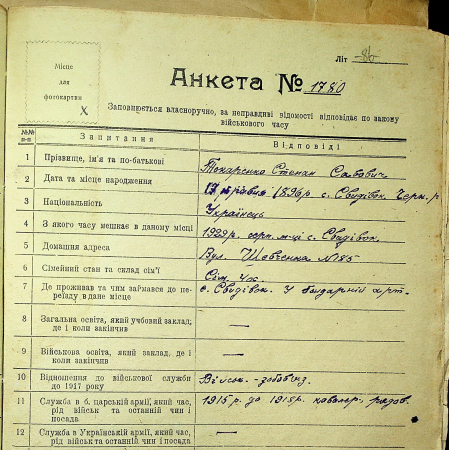 Літ 86
Місце
для
фотокартки
X
Анкета № 1780
Заповнюється власноручно, за неправдиві відомості відповідає по закону
військового часу
№№ п-п Запитання Відповіді
1 Прізвище, ім'я та по-батькові Токаренко Степан Савович
2 Дата та місце народження 1896р с. Свидівок, Черк. р
3 Національність Українець
4 З якого часу мешкає в даному місці 1929р. серп. м-ці с. Свидівок.
5 Домашня адреса Вул. Шевченка №185
6 Сімейний стан та склад сім'ї Сім. 4х
7 Де проживав та чим займався до пе- с. Свидівок. У бондарній арт.
реїзду в дане місце
8 Загальна освіта, який учбовий заклад, —
де і коли закінчив
9 Військова освіта, який заклад, де і —
коли закінчив
10 Відношення до військової служби Військ.-зобов'яз.
до 1917 року
11 Служба в б. царській армії, який час, 1915р. до 1918р. кавалер. рядов.
рід військ та останній чин і
посада
12 Служба в Українській армії, який час, —
рід військ та останній чин і посада